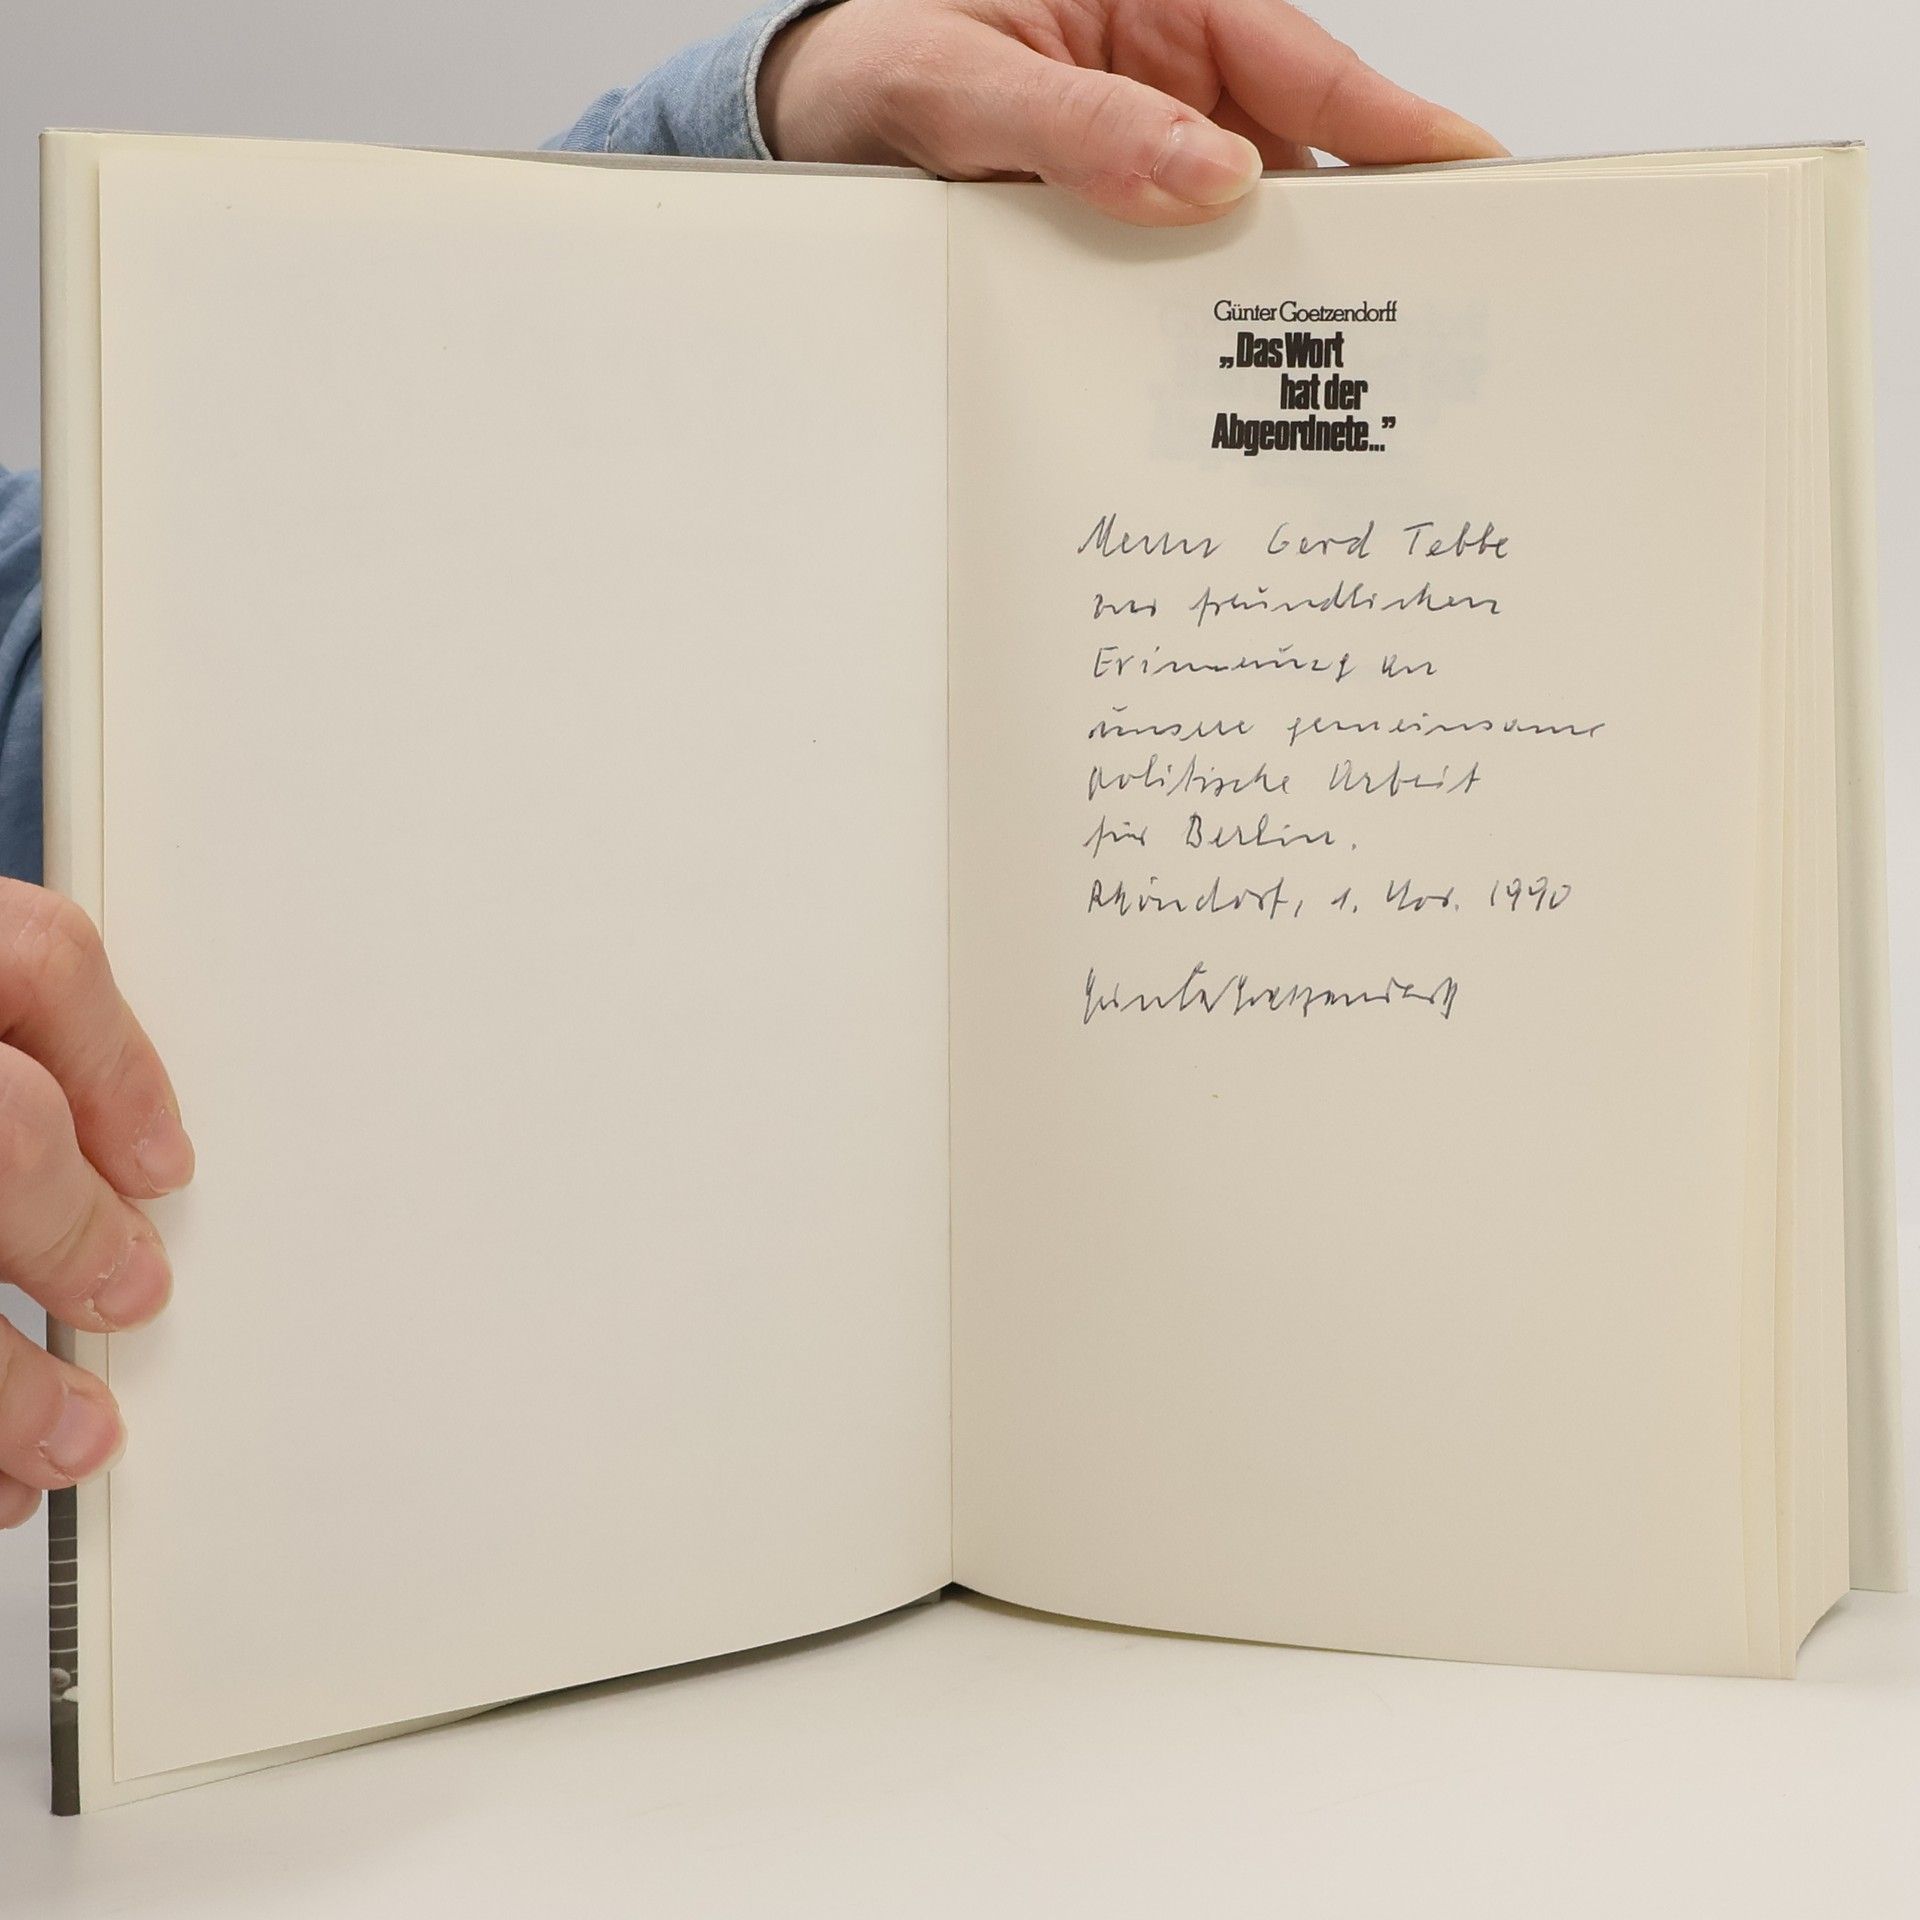 Günter Goetzendorff
„Das Wort
hat der
Abgeordnete...”
Herrn Gerd Tebbe
zur freundlichen
Erinnerung an
unsere gemeinsame
politische Arbeit
für Berlin.
Rhöndorf, 1. Nov. 1990
Günter Goetzendorff